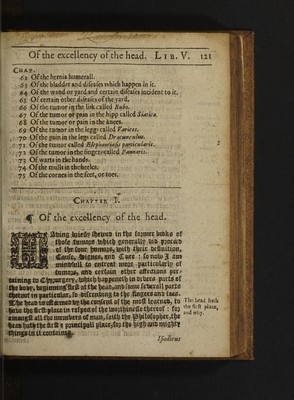 Of the excellency of the head. LIB. V. 121
CHAP.
62 Of the hernia humerall.
63 Of the bladder and diseases which happen in it.
64 Of the wand or yard and certain diseases incident to it.
65 Of certain other diseases of the yard.
66 Of the tumor in the lisk called Bubo.
67 Of the tumor or pain in the hipp called Siatica.
68 Of the tumor or pain in the knees.
69 Of the tumor in the leggs called Varices.
70 Of the pain in the legs called Dracunculus.
71 Of the tumor called Elephantiasis particularis.
72 Of the tumor in the fingers called Pannaris.
73 Of warts in the hands.
74 Of the mulls in the heeles.
75 Of the cornes in the feet, or toes.
CHAPTER I.
¶ Of the excellency of the head.
HAving briefly shewed in the former books of
those tumors which generally did proceed
of the four humors, with their definition,
Cause, Signes, and Cure : so now I am
mindfull to entreat more particularly of
tumors, and certain other affections per-
taining to Chyrurgery, which happeneth in divers parts of
the body, beginning first at the head, and some severall parts
thereof in particular, so descending to the fingers and toes.
The head is esteemed by the consent of the most learned, to
have the first place in respect of the worthinesse thereof : for
amongst all the members of man, saith the Philosopher, the
head hath the first & principall place, for the high and mighty
things in it contained.
The head hath
the first place,
and why.
Isodorus